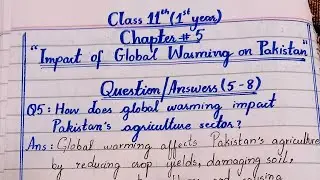 Class 11th (1st year)
Chapter # 5
"Impact of Global Warming on Pakistan"
Question/Answers (5-8)
Q5: How does global warming impact
Pakistan's agriculture sector?
Ans: Global warming affects Pakistan's agriculture
by reducing crop yields, damaging soil,